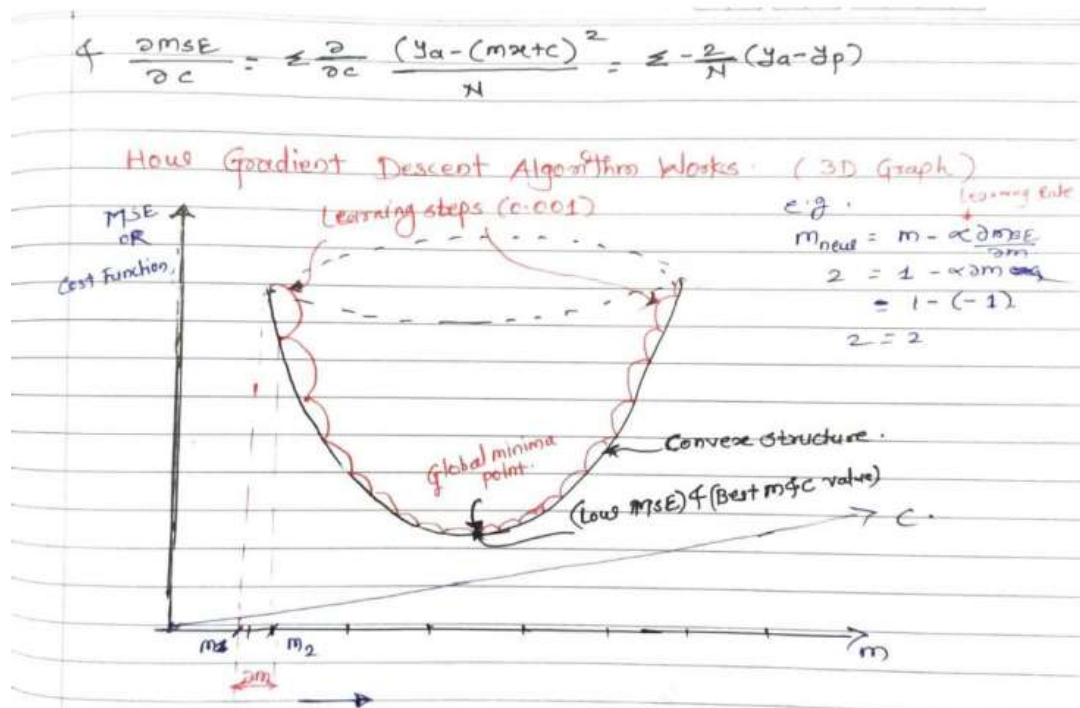 & ∂MSE/∂C = Σ ∂/∂C (ya-(mx+c)²/N = Σ -2/N (ya-yp)
How Gradient Descent Algorithm Works. (3D Graph)
MSE
OR
Cost Function,
Learning steps (0.001)
e.g.
Learning Rate
mnew = m - ∝ ∂MSE/∂m
2 = 1 - ∝∂m
= 1-(-1)
2 = 2
Convex structure.
Global minima
point.
(Low MSE) & (Best m & C value)
C.
m1
m2
m
∂m